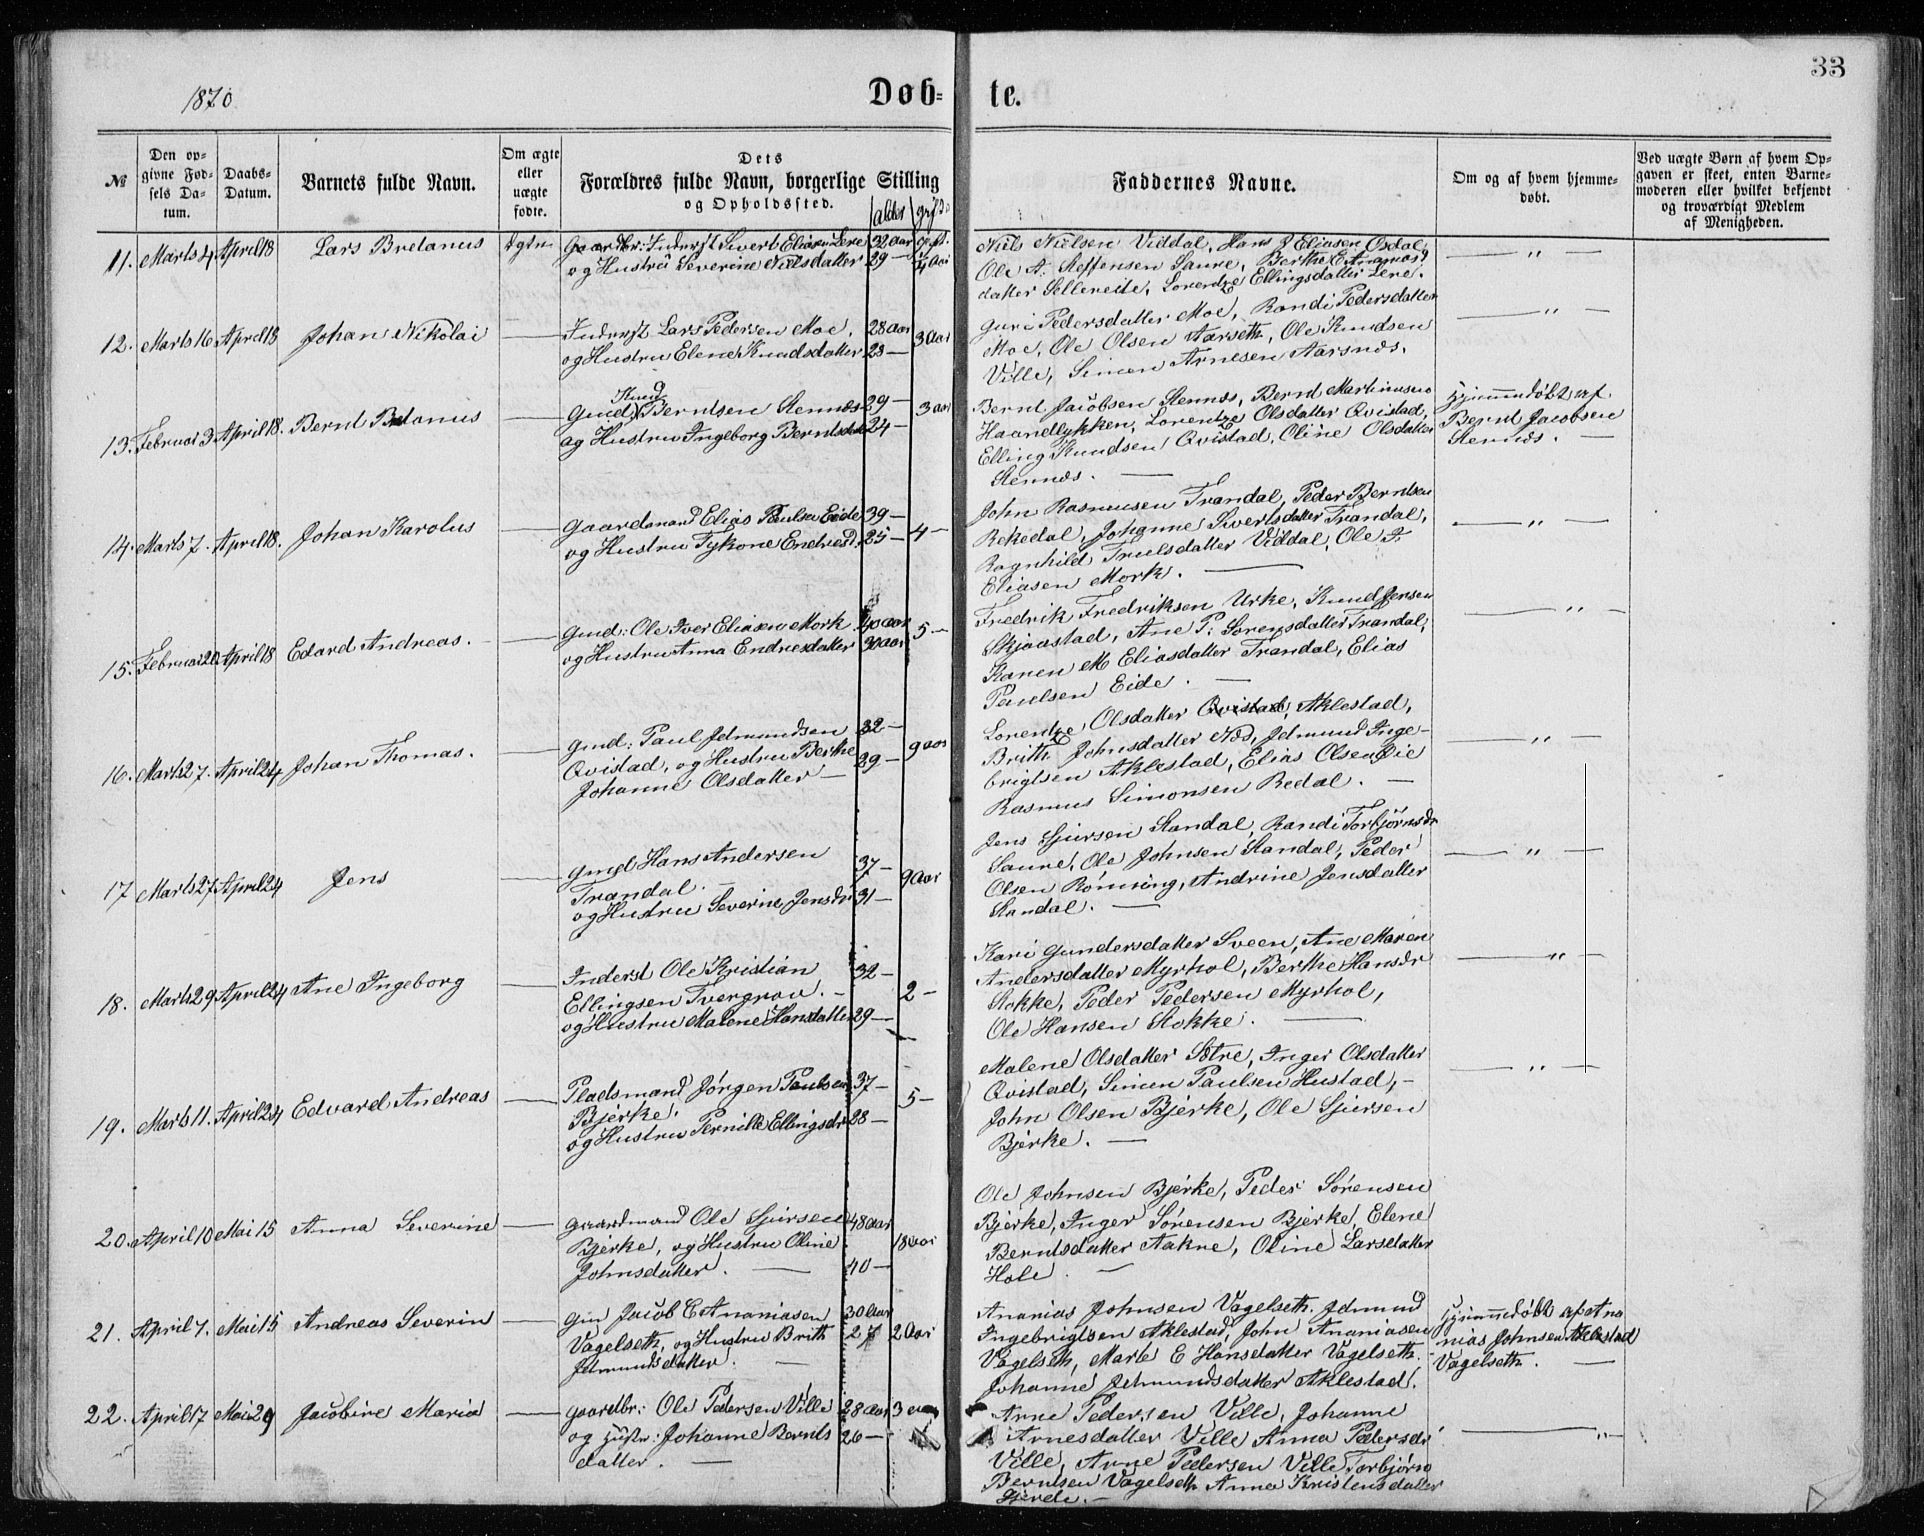 33
1870
Døb- te.
№
Den op-
givne Fød-
sels Da-
tum.
Daabs-
Datum.
Barnets fulde Navn.
Om ægte
eller
uægte
fødte.
Dets
Forældres fulde Navn, borgerlige Stilling
og Opholdssted.
alder
Faddernes Navne.
Om og af hvem hjemme-
døbt.
Ved uægte Børn af hvem Op-
gaven er skeet, enten Barne-
moderen eller hvilket bekjendt
og troværdigt Medlem
af Menigheden.
11. Marts 4 April 18 Lars Bretanus Ægte
Gaardbr: Inderst Sivert Eliasen Lere 32 aar
og Hustru Severine Nielsdatter 29 — 4 aar
Niels Nielsen Viddal, Hans J Eliasen Osdal,
Ole A. Steffensen Saure, Berthe E Ananias
datter Sellereite, Lorentze Ellingsdatter Lere.
— " —
12. Marts 16 April 18 Johan Nikolai —
Inderst Lars Pedersen Moe, 28 aar
og Hustru Elene Knudsdatter 23 — 3 aar
Guri Pedersdatter Moe, Randi Pedersdatter
Moe, Ole Olsen Aarseth, Ole Knudsen
Ville, Simon Arnesen Aarsnes.
— " —
13. Februar 3 April 18. Bernd Betanus —
Knud
Gmd: Berntsen Stennes 29 —
og Hustru Ingeborg Berntsdatter 24 — 3 aar
Bernt Jacobsen Stennes, Bernt Martinusen
Haandlykken, Lorentze Olsdatter Qvistad,
Elling Knudsen Qvistad, Oline Olsdatter
Stennes. —
Hjemmedøbt af
Bernt Jacobsen
Stennes. —
14. Marts 7. April 18. Johan Karolus —
Gaardmand Elias Paulsen Eide 39 —
og Hustru Fykone Endresd. 25 — 4 —
John Rasmusen Trandal, Peder Berntsen
Rekedal, Johanne Sivertsdatter Trandal,
Ragnhild Truelsdatter Viddal, Ole I.
Eliasen Mork. —
— " —
15. Februar 20. April 18 Edard Andreas. —
Gmd: Ole Iver Eliasen Mork 40 aar
og Hustru Anna Endresdatter 30 aar 5 —
Fredrik Fredriksen Urke, Knud Jensen
Skjaastad, Ane P: Sorensdatter Trandal,
Karen M Eliasdatter Trandal, Elias
Paulsen Eide. —
— " —
16. Marts 27. April 24 Johan Thomas. —
Gmd: Paul Jetmundsen 32 —
Qvistad, og Hustru Berthe
Johanne Olsdatter — 29 — 9 aar
Lorentze Olsdatter Qvistad, Aklestad,
Brith Johnsdatter Nos, Jetmund Inge-
brigtsen Aklestad, Elias Olsen Øie
Rasmus Simonsen Redal. —
— " —
17 Marts 27 April 24 Jens —
Gmd Hans Andersen
Trandal. — 37 —
og Hustru Severine Jensdr 31 — 9 aar
Jens Sjursen Standal, Randi Torbjørnsdr
Saure, Ole Johnsen Standal, Peder
Olsen Rønning, Andrine Jensdatter
Standal. —
— " —
18. Marts 29 April 24 Ane Ingeborg —
Inderst Ole Kristian 32 —
Ellingsen Tvergrov. —
og Hustru Malene Hansdatter 29 — 2 —
Kari Gundersdatter Sveen, Ane Maren
Andersdatter Myrhol, Berthe Hansdr
Stokke, Peder Pedersen Myrhol,
Ole Hansen Stokke. —
— " —
19. Marts 11. April 24 Edvard Andreas —
Pladsmand Jørgen Paulsen 37 —
Bjerke,
og Hustru Pernille Ellingsdr 28 — 5 —
Malene Olsdatter Sætre, Inger Olsdatter
Qvistad, Simon Paulsen Hustad, —
John Olsen Bjerke, Ole Sjursen
Bjerke. —
— " —
20. April 10 Mai 15 Anna Severine —
Gaardmand Ole Sjursen 48 aar
Bjerke, og Hustru Oline 18 aar
Johnsdatter. — 40 —
Ole Johnsen Bjerke, Peder Sörensen
Bjerke, Inger Sörensen Bjerke, Elene
Berntsdatter Aakne, Oline Larsdatter
Hole. —
21. April 7. Mai 15 Andreas Severin —
Gm Jacob E Ananiasen 30 aar
Vagelseth, og Hustru Brith 27 2 aar
Jetmundsdatter. —
Ananias Johnsen Vagelseth. Jetmund
Ingebrigtsen Aklestad, John Ananiasen
Vagelseth, Marte E Hansdatter Vagelseth.
Johanne Jetmundsdatter Aklestad.
Hjemmedøbt af Ana
nias Johnsen Aklestad
Vagelseth. —
22. April 17 Mai 29 Jacobine Maria —
Gaardbr: Ole Pedersen Ville 28 aar 3 aar
og Hustr: Johanne Bernts 26 —
datter. —
Arne Pedersen Ville, Johanne
Arnesdatter Ville Anna Pedersdr
Ville, Anne Pedersen Ville Torbjørn
Berntsen Vagelseth Anna Kristensdatter
Gjerde. —
— " —